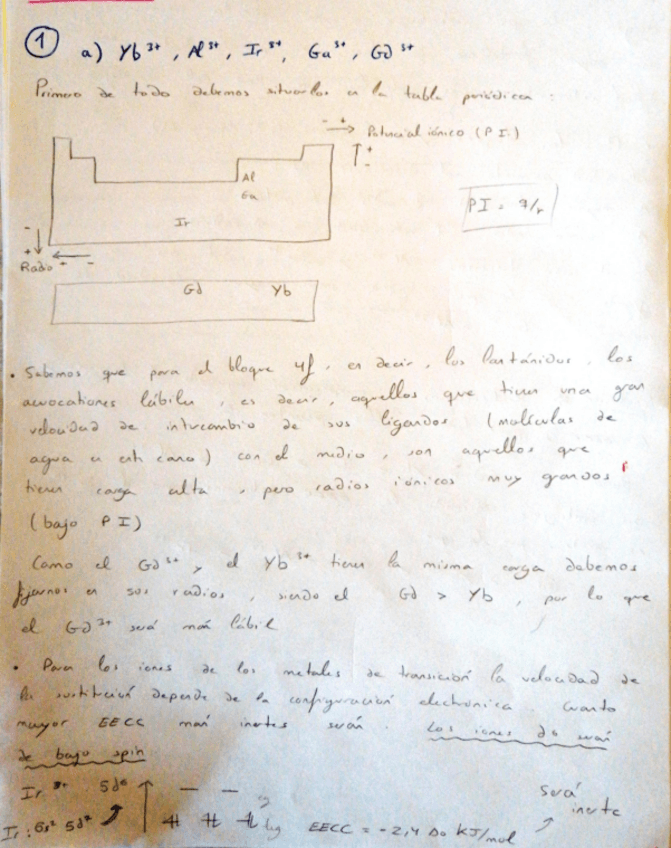 1
a) Yb³⁺, Al³⁺, Ir³⁺, Ga³⁺, Gd³⁺
Primero de todo debemos situarlos en la tabla periódica:
- + → Potencial iónico (P.I.)
↑ + -
Al
Ga
PI = q/r
Ir
- ↓ +
Radio + ← -
Gd Yb
• Sabemos que para el bloque 4f, es decir, los lantánidos, los
acuocationes lábiles, es decir, aquellos que tienen una gran
velocidad de intercambio de sus ligandos (moléculas de
agua en este caso) con el medio, son aquellos que
tienen carga alta, pero radios iónicos muy grandes
(bajo PI)
Como el Gd³⁺ y el Yb³⁺ tienen la misma carga debemos
fijarnos en sus radios, siendo el Gd > Yb, por lo que
el Gd³⁺ será más lábil
• Para los iones de los metales de transición la velocidad de
la sustitución depende de la configuración electrónica. Cuanto
mayor EECC más inertes serán. Los iones d⁶ serán
de bajo spin
Ir³⁺ 5d⁶
Ir: 6s² 5d⁷
t₂g EECC = -2,4 Δo KJ/mol
Será
inerte